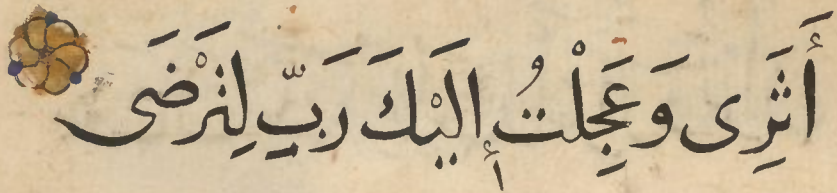 أَثَرِى وَعَجِلْتُ إِلَيْكَ رَبِّ لِتَرْضَى